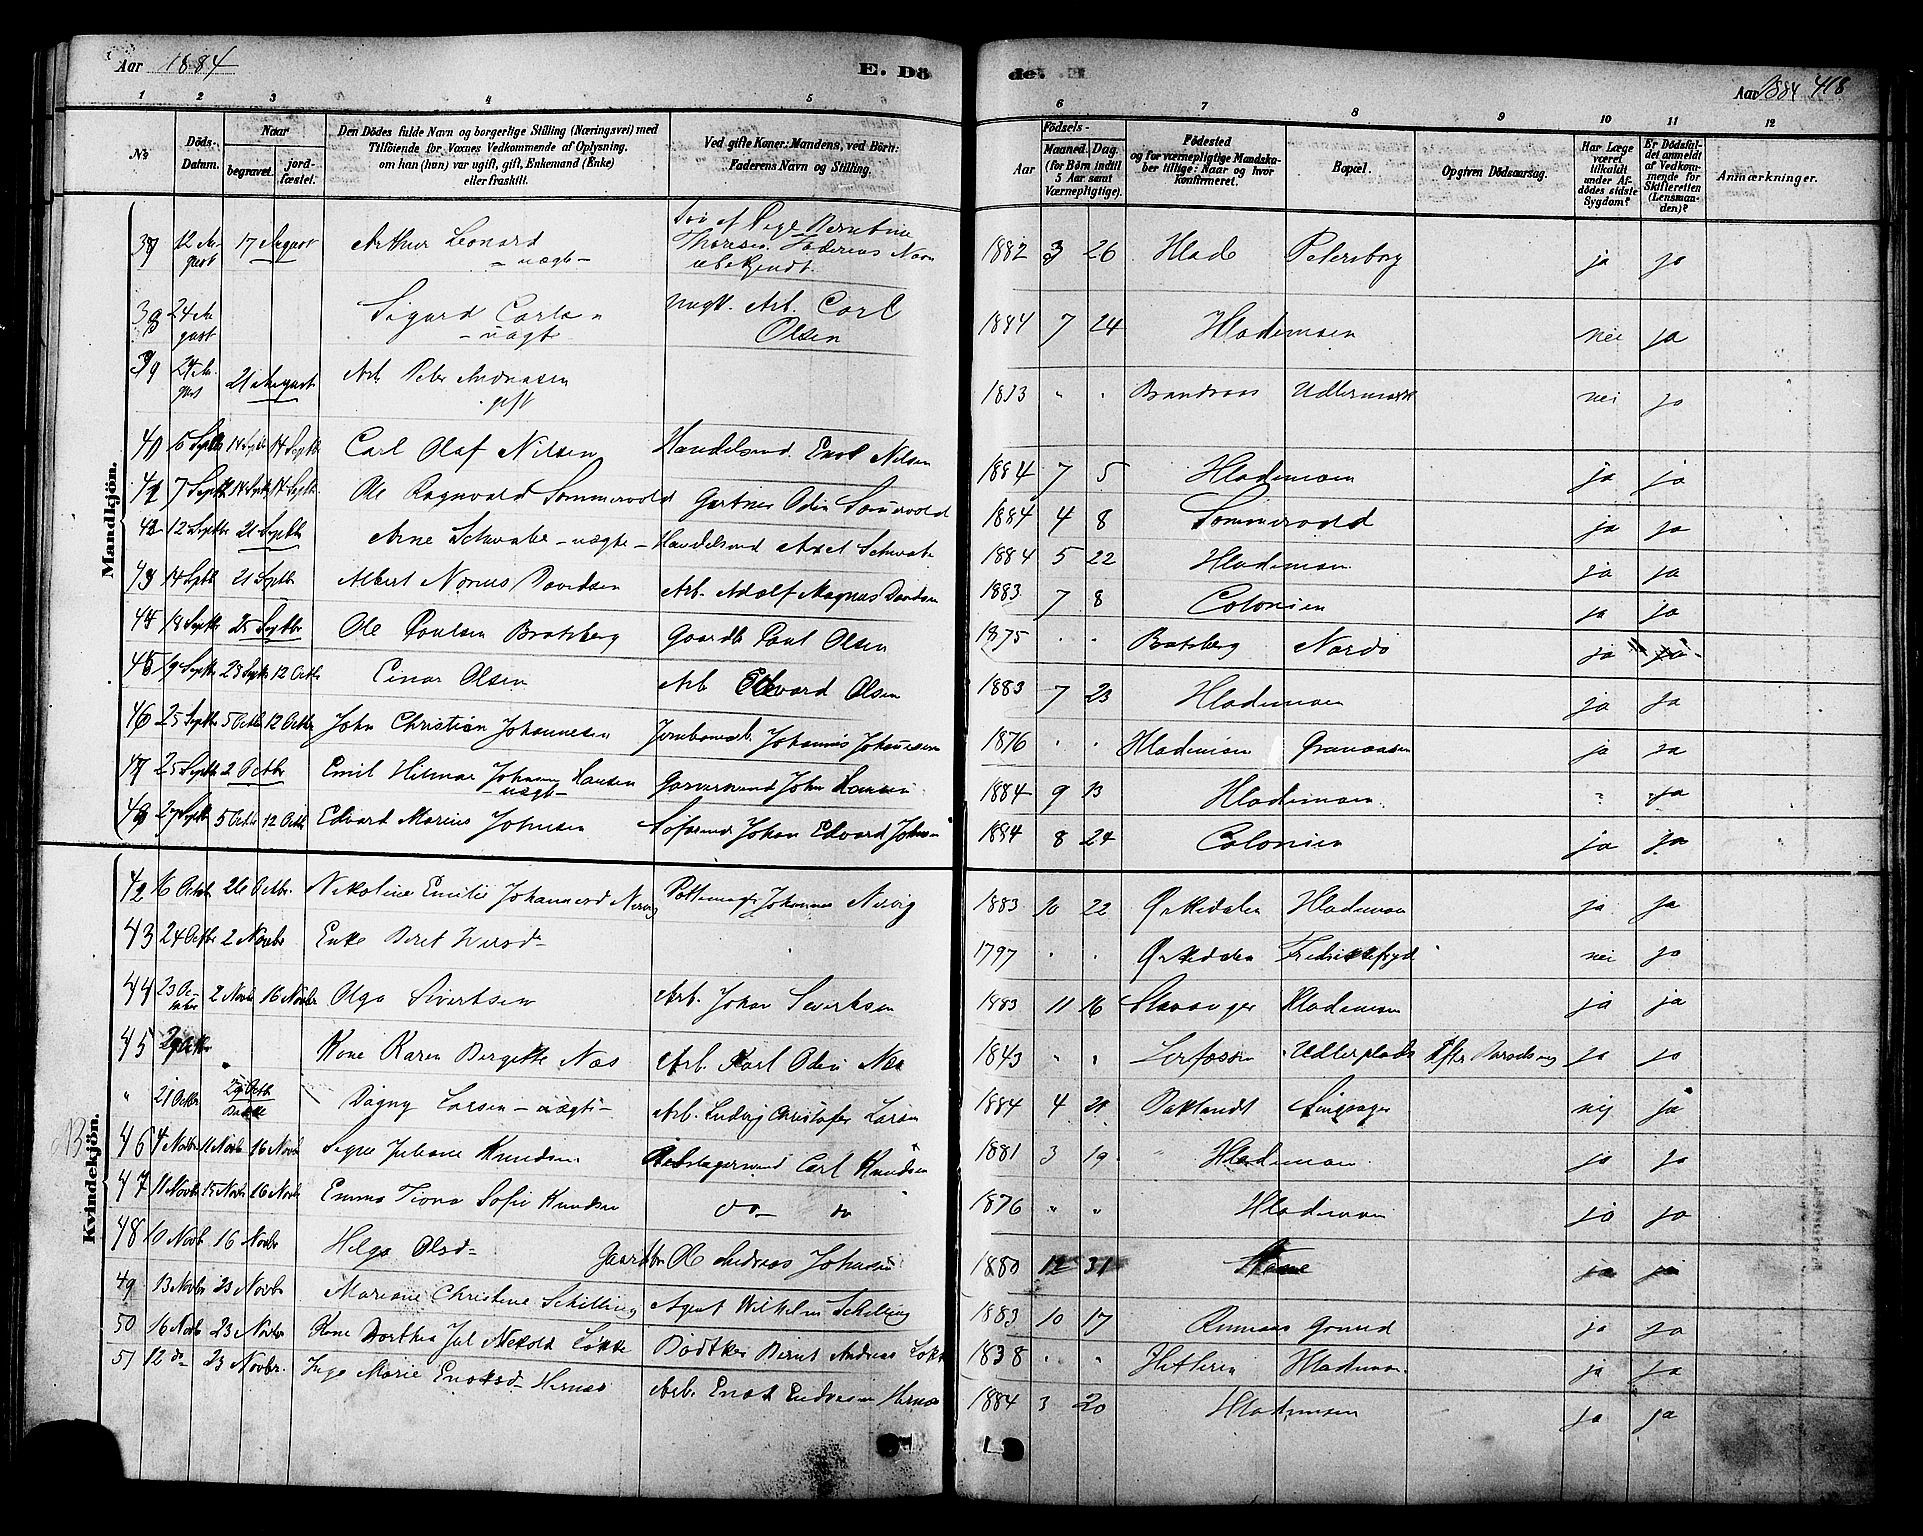 Aar 1884 E. Dö de. Aar 1884 418
1 2 3 4 5 6 7 8 9 10 11 12
No Döds-Datum. Naar begravet. jord-fæstet. Den Dödes fulde Navn og borgerlige Stilling (Næringsvei) med Tilföiende for Voxnes Vedkommende af Oplysning, om han (hun) var ugift, gift, Enkemand (Enke) eller fraskilt. Ved gifte Koner: Mandens, ved Börn: Faderens Navn og Stilling. Aar Födsels- Maaned. Dag. (for Börn indtil 5 Aar samt Værnepligtige). Födested og for værnepligtige Mandskaber tillige: Naar og hvor Konfirmeret. Bopæl. Opgiven Dödsaarsag. Har Læge været tilkaldt under Afdödes sidste Sygdom? Er Dödsfaldet anmeldt af Vedkommende for Skifteretten (Lensmanden)? Anmærkninger.
Mandkjön.
37 12 August 17 August Arthur Leonard - uægte - Pige Berntine Faderens Navn ubekjendt. 1882 3 26 Hlade Petersborg ja ja
38 24 August Sigurd Carlsen - uægte Arb. Carl Olsen 1884 7 24 Hlademoen nei ja
39 24 August 21 August Arb. Peter Andreasen gift 1813 " " nei ja
40 5 Septbr 14 Septbr 14 Septbr Carl Olaf Nilsen Handelsmd. Nilsen 1884 7 5 Hlademoen ja ja
41 7 Septbr 14 Septbr 14 Septbr Ole Ragnvald Sommervold Gartner Odin Somervold 1884 4 8 Sommervold ja ja
42 12 Septbr 21 Septbr Arne Schwabe - uægte - Handelsmd Axel Schwabe 1884 5 22 Hlademoen ja ja
43 14 Septb 21 Septbr Albert Davidsen Arb. Adolf Magnus Davidsen 1883 7 8 Colonien ja ja
44 18 Septbr 25 Septbr Ole Poulsen Bratsberg Gaardb Paul Olsen 1875 " " Bratsberg Nardo ja ja
45 19 Septbr 28 Septbr 12 Octbr Einar Olsen Arb Edvard Olsen 1883 7 23 Hlademoen ja ja
46 25 Septbr 5 Octbr 12 Octbr John Christian Johannesen Johannes Johannesen 1876 " " Hlademoen Granaasen ja ja
47 25 Septbr 2 Octbr Emil Hilmar Johann Hansen - uægte - Garversvend John Hansen 1884 9 13 Hlademoen " ja
48 27 Septbr 5 Octbr 12 Octbr Edvard Marius Johnsen Johan Edvard Johnsen 1884 8 24 Colonien ja ja
Kvindekjön.
42 16 Octbr. 26 Octbr. Nikoline Emilie Johannesd Nervig Pottemager Johannes Nervig 1883 10 22 Orkedalen Hlademoen ja ja
43 24 Octbr 2 Novbr Enke Beret Iversd- 1797 " " Orkedalen Fredriksfryd nei ja
44 23 October 2 Novbr 16 Novbr Olga Sivertsen Arb. Johan Sivertsen 1883 11 16 Stavanger Hlademoen ja ja
45 29 Octbr Kone Karen Bergitte Næs Arb. Karl Odin Næs 1843 " " Udlerplads Efter Barselseng ja ja
" 21 Octbr 29 Octbr Dagny Larsen - uægte - Arb. Ludvig Christofer Larsen 1884 4 21 nej ja
46 4 Novbr 11 Novbr 16 Novbr Signe Juliane Knudsen Carl Knudsen 1881 3 19 Hlademoen ja ja
47 11 Novbr 15 Novbr 16 Novbr Emma Sofie Knudsen do do 1876 " " Hlademoen ja ja
48 10 Novb. 16 Novbr Helga Olsd- Gaardbr Ole Andreas Johnsen 1880 12 31 ja ja
49 13 Novbr 23 Novbr Mariane Christine Schilling Agent Wilhelm Schilling 1883 10 17 Grund ja ja
50 16 Novbr 23 Novbr Kone Dorthea Løkke Bødtker Bernt Andreas Løkke 1838 " " Hitteren Hlademoen ja ja
51 12 do 23 Novbr. Inga Marie Enoksd- Hernes Arb. Enok Hernes 1884 3 20 Hlademoen ja ja